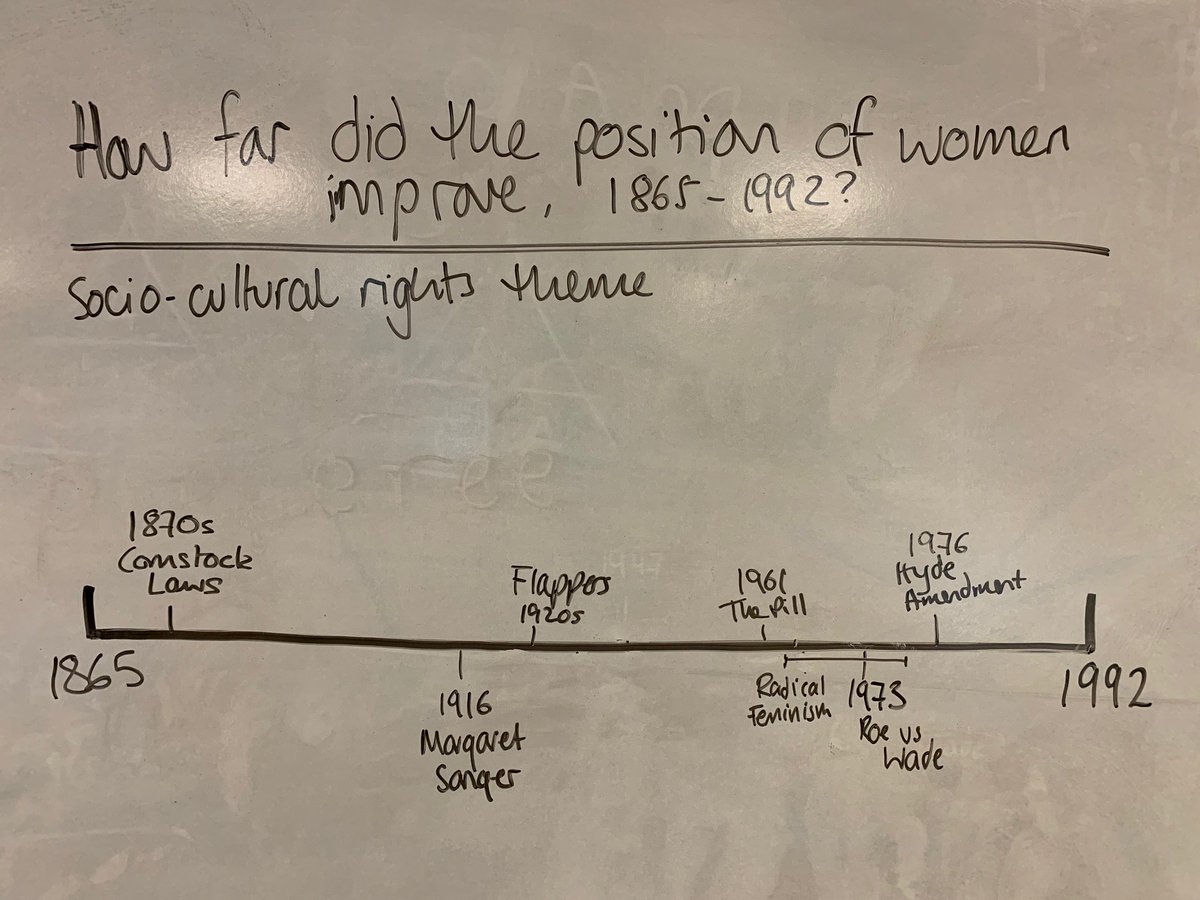 How far did the position of women
improve, 1865-1992?
Socio-cultural rights theme
1870s
Comstock
Laws
Flappers
1920s
1961
The Pill
1976
Hyde
Amendment
1865
1916
Margaret
Sanger
Radical
Feminism
1973
Roe vs
Wade
1992